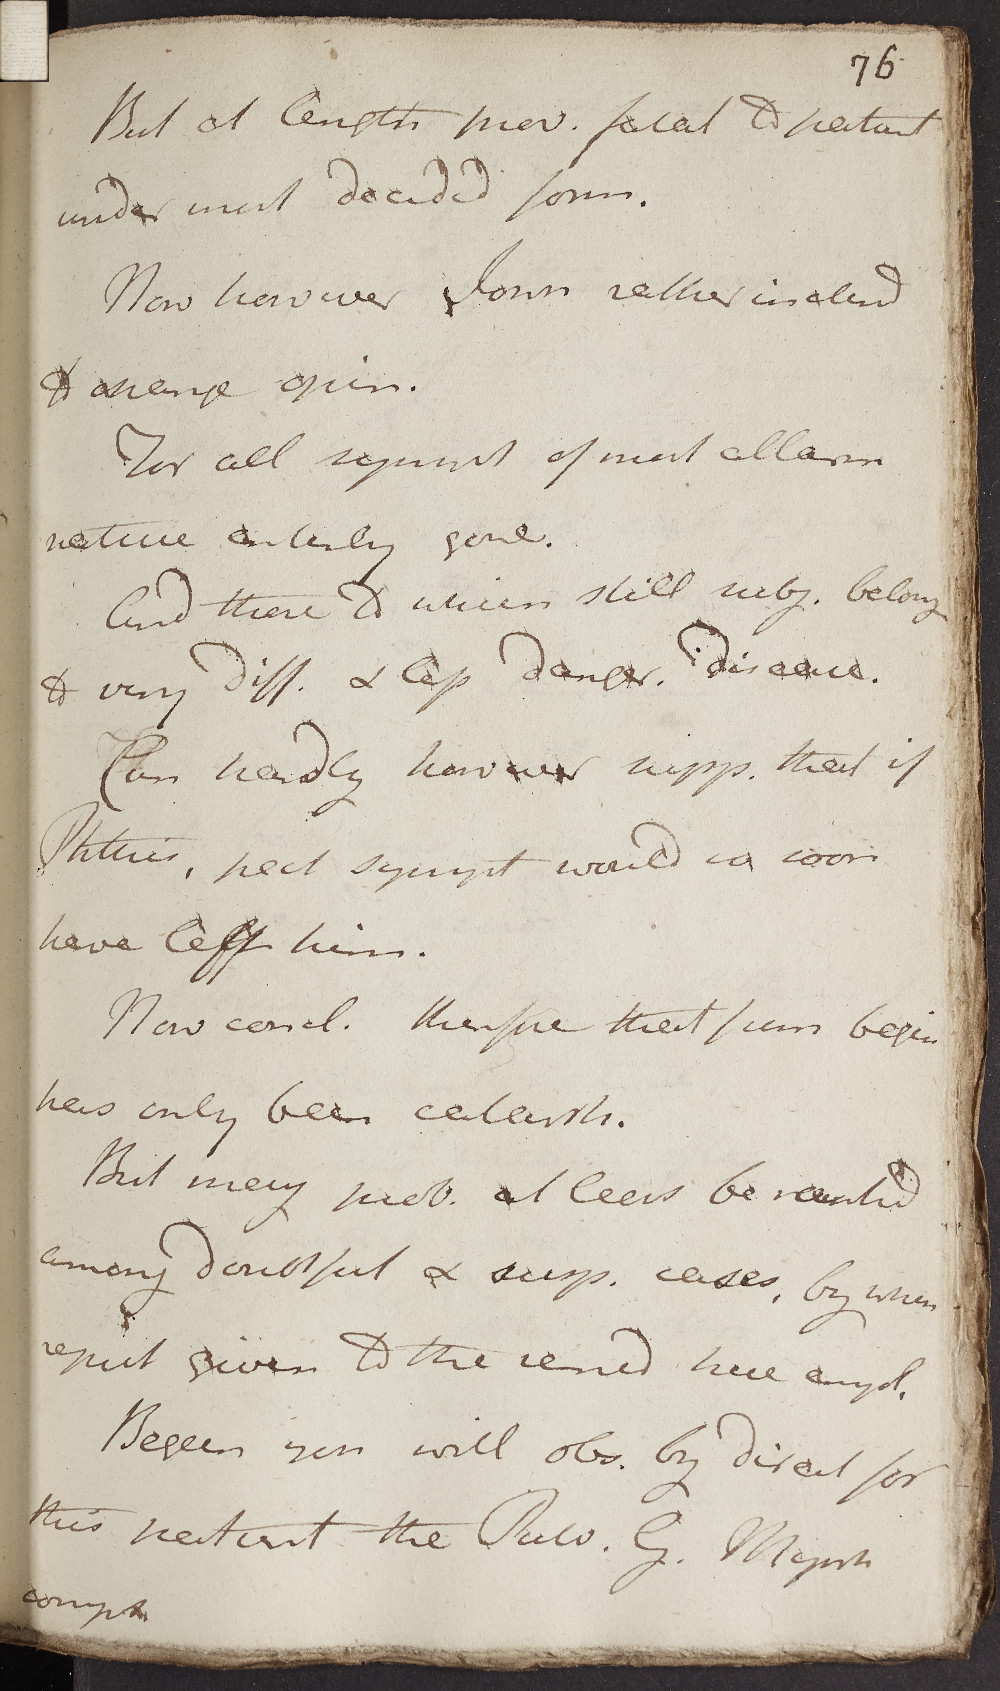 76
But at length prov. fatal to patient
under most decided form.
Now however I own rather inclind
to change opin.
For all sympt of most allarm
nature entirely gone.
And those to which still subj. belong
to very diff. & less danger. disease.
Can hardly however supp. that if
Phthis, pect sympt would so soon
have left him.
Now concl. therefore that from begin
has only been catarrh.
But may prob. at least be rankd
among doubtful & susp. cases, by when
report given to the remed here empl.
Began you will obs. by direct for
this patient the Pulv. G. Myrrh
comp.